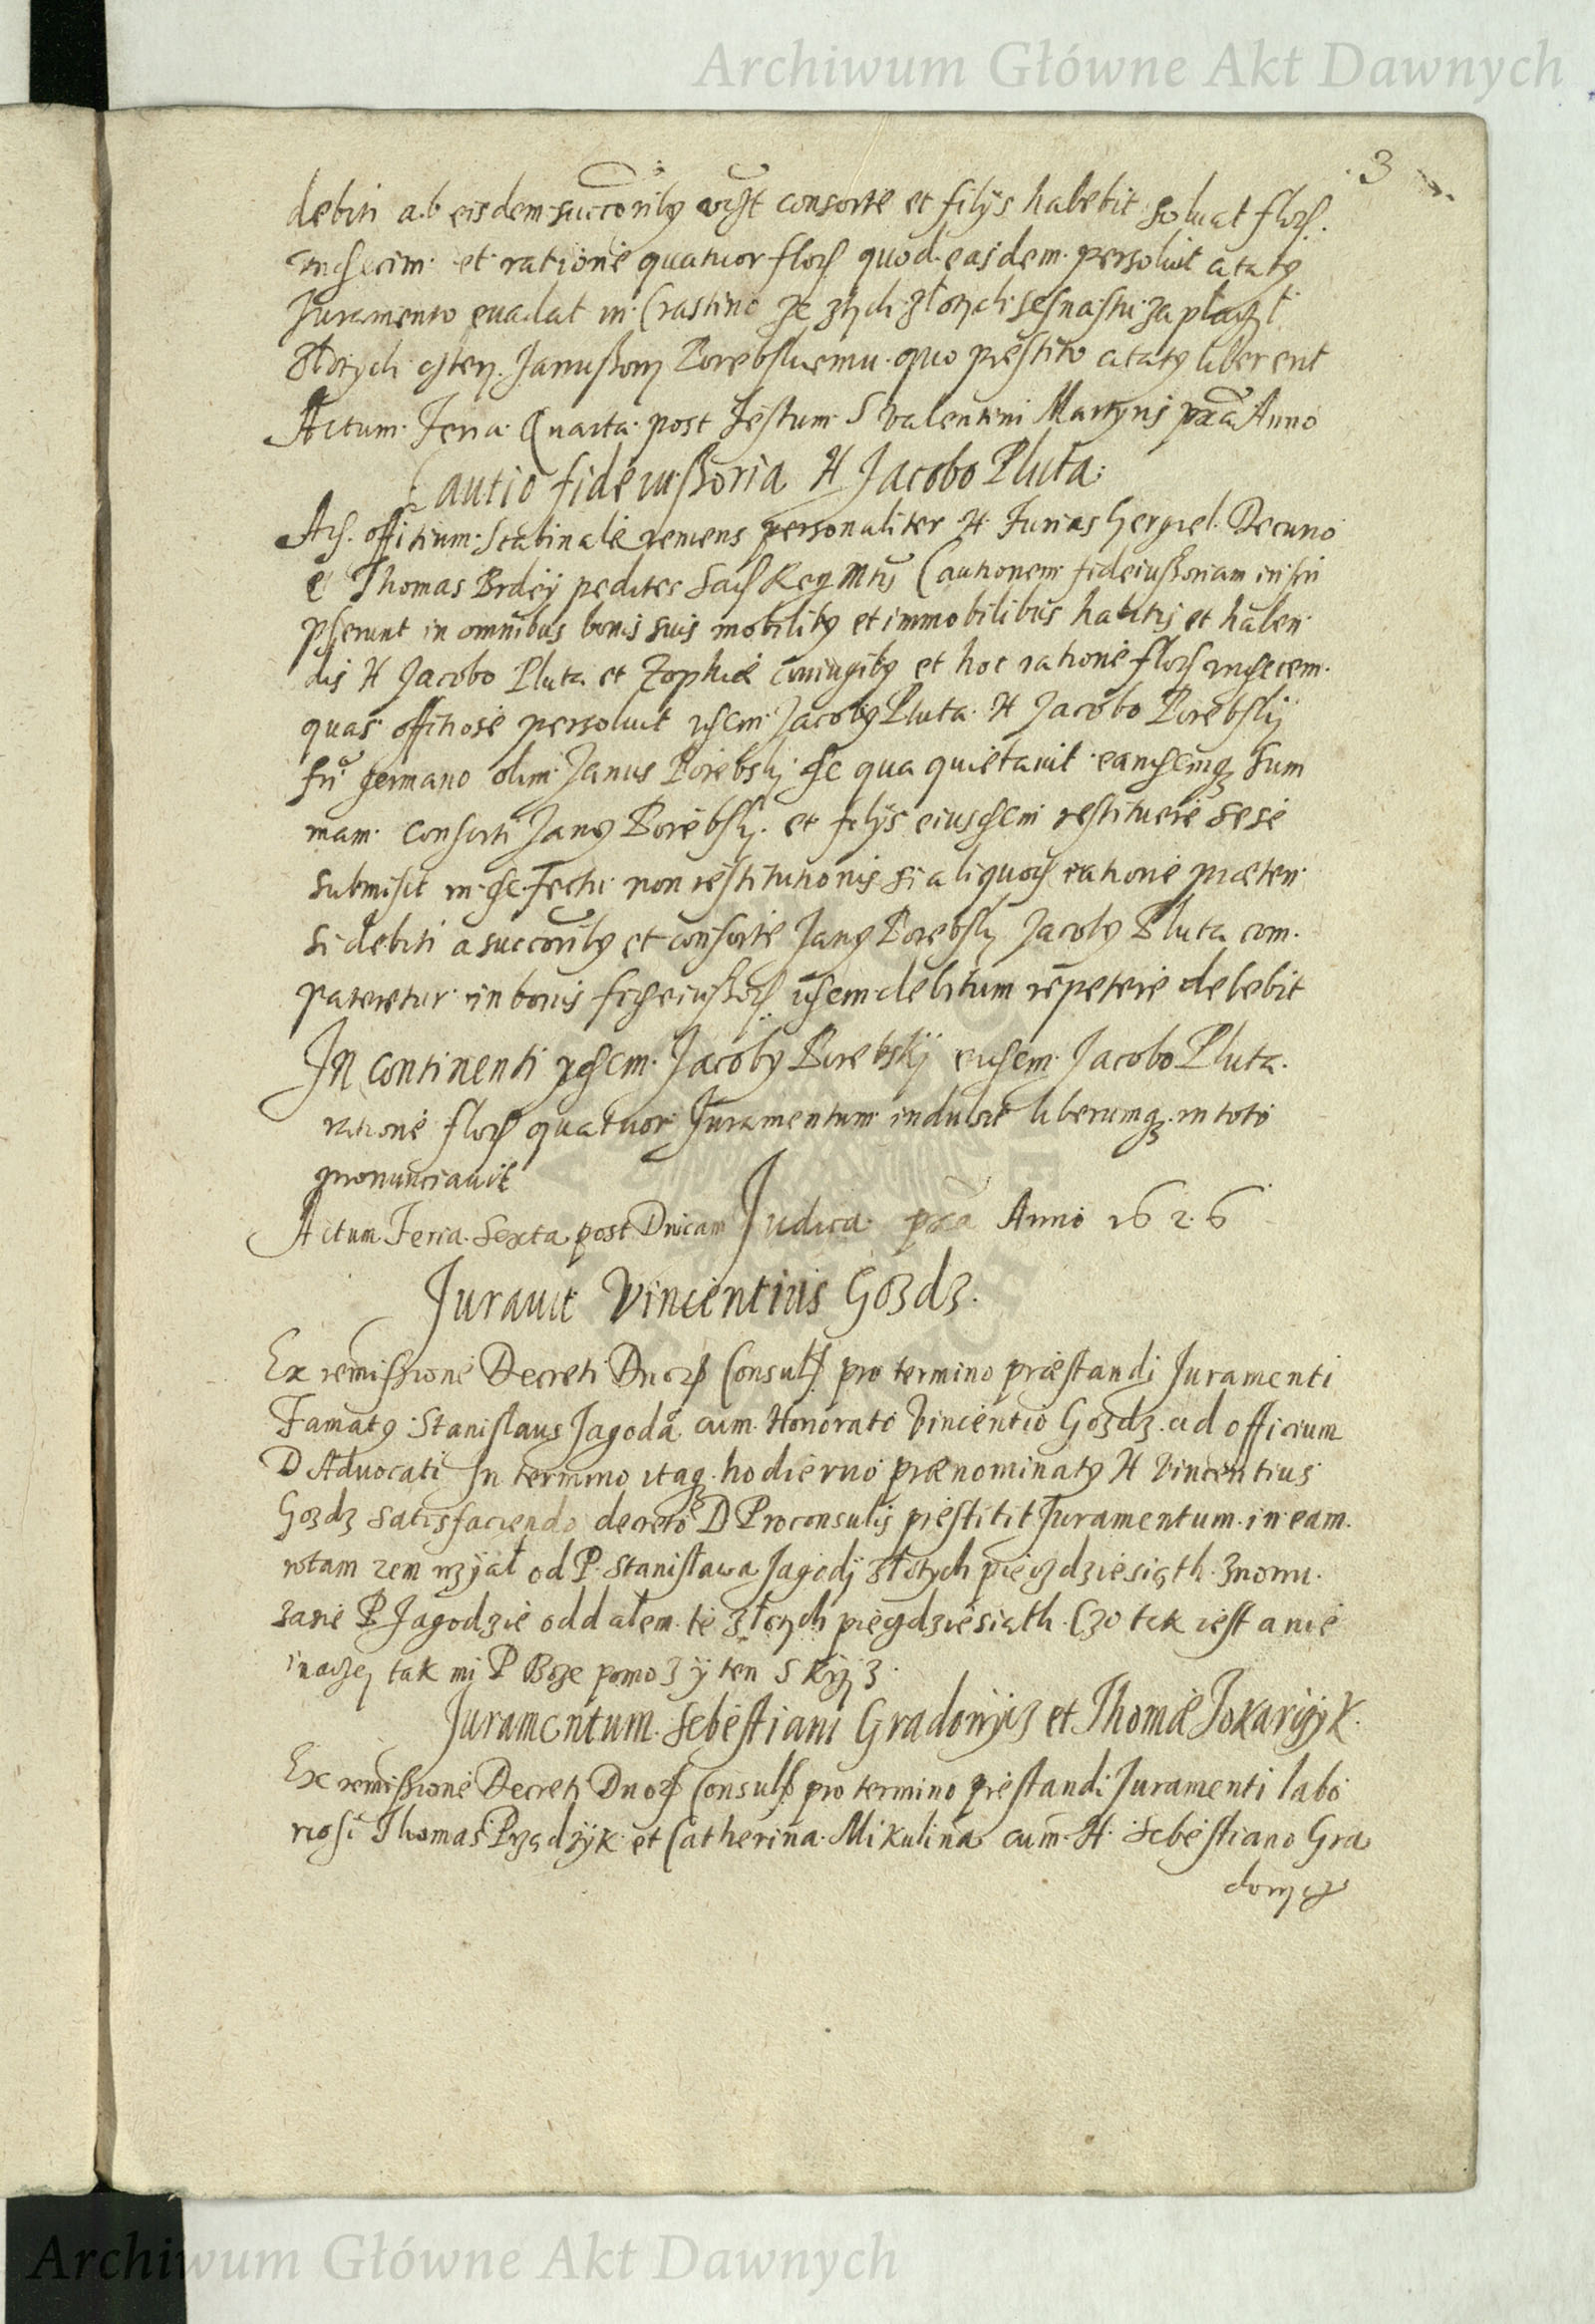 Archiwum Główne Akt Dawnych
3
debiti ab eisdem succorib9 consorte et filijs habebit soluat flor.
et ratione quatuor flor quod easdem persoluit actat9
Juramento euadat in Crastino ze złotych sesnastu zapłaczł
złotych cztery Janußowy Borebskiemu quo prestito actat9 liber erit
Actum Feria Quarta post Festum S Valentini Martyris pra Anno
Cautio fideiußoria H Jacobo Pluta
Ad offitium Scabinale veniens personaliter H Furias Gergiel Decurio
et Thomas Brdey pedites Sac Reg Mtis Cautionem fideiußoriam inscri
pserunt in omnibus bonis suis mobilib9 et immobilibus habitis et haben
dis H Jacobo Pluta et Zophiæ coniugib9 et hoc ratione flor undecem
quas offitiose persoluit idem Jacob9 Pluta H Jacobo Borebskij
fri germano olim Janus Borebskj de qua quietauit eandemq3 Sum
mam consorti Jan9 Borebskj et filijs eiusdem restituere sese
submisit in defectu non restitutionis si aliquod ratione præten
si debiti a succorib9 et consorte Jan9 Borebskj Jacob9 Pluta com
pateretur in bonis fideiußor idem debitum repetere debebit
In continenti idem Jacob9 Borebskij eidem Jacobo Pluta
ratione flor quatuor Juramentum indulsit liberumq3 in toto
pronunciauit
Actum Feria Sexta post Dnicam Judica pra Anno 1626
Jurauit Vincentius Gozdz
Ex remissione Decreti Dnor Consul pro termino præstandi Juramenti
Famat9 Stanislaus Jagoda cum Honorato Vincentio Gozdz ad officium
D Aduocati In termino itaq3 hodierno prænominat9 H Vincentius
Gozdz satisfaciendo decreto D Proconsulis prestitit Juramentum in eam
rotam zem wzyał od P Stanisława Jagodÿ złotych pięczdziesiąth znowu
zasie P Jagodzie oddałem te złotych pięczdziesiąth Czo tak iest a nie
inaczey tak mi P Boze pomoz ÿ ten S Krzyz
Juramentum Sebestiani Gradowycz et Thomæ Tokarczyk
Ex remissione Decreti Dnor Consul pro termino prestandi Juramenti labo
riosi Thomas Prządzÿk et Catherina Mikulina cum H Sebestiano Gra
dowycz
Archiwum Główne Akt Dawnych